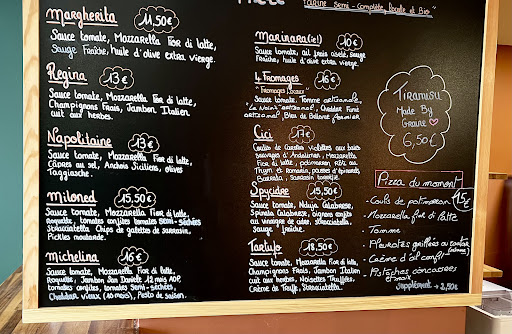 Farine Semi-Complète, locale et Bio"
Margherita 11,50€
Sauce tomate, Mozzarella Fior di latte,
Sauge Fraîche, huile d'olive extra vierge.
Regina 13€
Sauce tomate, Mozzarella Fior di latte,
Champignons Frais, Jambon Italien
cuit aux herbes.
Napolitaine 13€
Sauce tomate, Mozzarella Fior di latte,
Câpres au sel, Anchois Siciliens, olives
Taggiasche.
Miloned 15,50€
Sauce tomate, Mozzarella Fior di latte,
Roquette, tomates confites tomates Semi-séchées
Stracciatella Chips de galettes de sarrasin,
Pickles moutarde.
Michelina 16€
Sauce tomate, Mozzarella Fior di latte,
Roquette, Jambon San Daniele 12 mois AOP,
tomates confites, tomates Semi-séchées,
Cheddar vieux (10 mois), Pesto de saison.
Marinara 10€
Sauce tomate, ail frais ciselé, sauge
Fraîche, d'olive extra vierge.
4 Fromages 16€
"Fromages locaux"
Sauce tomate, Tomme artisanale,
artisanal, Bleu de fermier
Cici 17€
Coulis de Carottes violettes aux baies
sauvages d'Andaliman, Mozzarella
Fior di latte, potimarron rôti au
Thym et romarin, d'épinards,
Burrata, Sarrasin
Spycidre 15,50€
Sauce tomate, Nduja Calabrese,
Spinata Calabrese, oignons confits
au vinaigre de cidre, stracciatella,
sauge fraîche.
Tartufo 18,50€
Sauce tomate, Mozzarella Fior di latte,
Champignons Frais, Jambon Italien
cuit aux herbes, Noisettes Truffées,
Crème de Truffe, Stracciatella.
Tiramisu
Made By
Graine
6,50€
Pizza du moment 15€
- Coulis de potimarron
- Mozzarella fior di latte
- Tomme
- Pleurotes grillées au
- Crème d'ail confit
- Pistaches concassées
Supplément + 2,50€